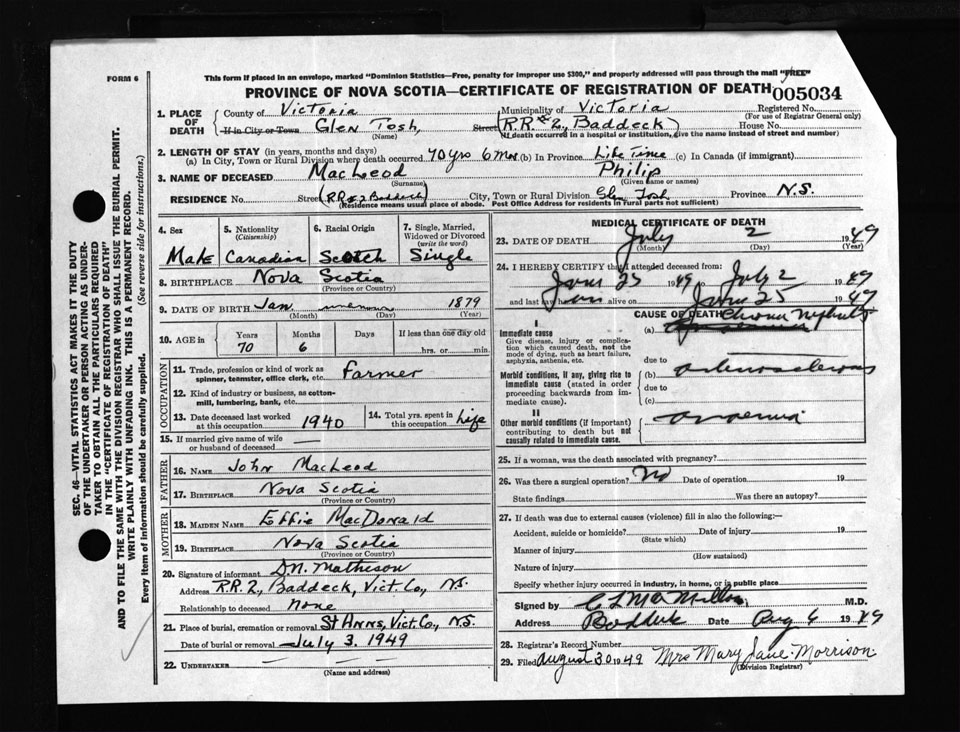 FORM 6
This form if placed in an envelope, marked "Dominion Statistics—Free, penalty for improper use $300," and properly addressed will pass through the mail "FREE"
PROVINCE OF NOVA SCOTIA—CERTIFICATE OF REGISTRATION OF DEATH 005034
1. PLACE OF DEATH County of Victoria Municipality of Victoria Registered No.
(For use of Registrar General only)
If in City or Town Glen Tosh, Street (R.R.#2, Baddeck) House No.
(Name) (If death occurred in a hospital or institution, give the name instead of street and number)
2. LENGTH OF STAY (in years, months and days)
(a) In City, Town or Rural Division where death occurred 70 yrs 6 mos (b) In Province Life Time (c) In Canada (if immigrant)
3. NAME OF DECEASED MacLeod Philip
(Surname) (Given name or names)
RESIDENCE No. Street (R.R #2 Baddeck) City, Town or Rural Division Glen Tosh Province N.S.
(Residence means usual place of abode. Post Office Address for residents in rural parts not sufficient)
4. Sex 5. Nationality (Citizenship) 6. Racial Origin 7. Single, Married, Widowed or Divorced (write the word)
Male Canadian Scotch Single
8. BIRTHPLACE Nova Scotia
(Province or Country)
9. DATE OF BIRTH Jan 1879
(Month) (Day) (Year)
10. AGE in Years Months If less than one day old
70 6 hrs. or min.
OCCUPATION
11. Trade, profession or kind of work as spinner, teamster, office clerk, etc. Farmer
12. Kind of industry or business, as cotton-mill, lumbering, bank, etc.
13. Date deceased last worked at this occupation 1940 14. Total yrs. spent in this occupation Life
15. If married give name of wife or husband of deceased
FATHER
16. NAME John MacLeod
17. BIRTHPLACE Nova Scotia
(Province or Country)
MOTHER
18. MAIDEN NAME Effie MacDonald
19. BIRTHPLACE Nova Scotia
(Province or Country)
20. Signature of informant D.N. Matheson
Address R.R. 2, Baddeck, Vict. Co, N.S.
Relationship to deceased None
21. Place of burial, cremation or removal St Anns, Vict. Co., N.S.
Date of burial or removal July 3. 1949
22. UNDERTAKER
(Name and address)
MEDICAL CERTIFICATE OF DEATH
23. DATE OF DEATH July 2 1949
(Month) (Day) (Year)
24. I HEREBY CERTIFY that I attended deceased from:
June 25 1949 to July 2 1949
and last saw him alive on June 25 1949
CAUSE OF DEATH
I
Immediate cause (a) Chronic Nephritis
Give disease, injury or complication which caused death, not the mode of dying, such as heart failure, asphyxia, asthenia, etc.
due to
Morbid conditions, if any, giving rise to immediate cause (stated in order proceeding backwards from immediate cause). (b) Arteriosclerosis
due to
(c)
II
Other morbid conditions (if important) contributing to death but not causally related to immediate cause.
25. If a woman, was the death associated with pregnancy?
26. Was there a surgical operation? No Date of operation 19
State findings Was there an autopsy?
27. If death was due to external causes (violence) fill in also the following:—
Accident, suicide or homicide? Date of injury 19
(State which)
Manner of injury
(How sustained)
Nature of injury
Specify whether injury occurred in industry, in home, or in public place
Signed by C L MacMillan M.D.
Address Baddeck Date Aug 6 1949
28. Registrar's Record Number
29. Filed August 30 1949 Mrs Mary Jane Morrison
(Division Registrar)
SEC. 46—VITAL STATISTICS ACT MAKES IT THE DUTY
OF THE UNDERTAKER OR PERSON ACTING AS UNDER-
TAKER TO OBTAIN ALL THE PARTICULARS REQUIRED
IN THE "CERTIFICATE OF REGISTRATION OF DEATH"
AND TO FILE THE SAME WITH THE DIVISION REGISTRAR WHO SHALL ISSUE THE BURIAL PERMIT.
WRITE PLAINLY WITH UNFADING INK. THIS IS A PERMANENT RECORD.
Every item of information should be carefully supplied. (See reverse side for instructions.)